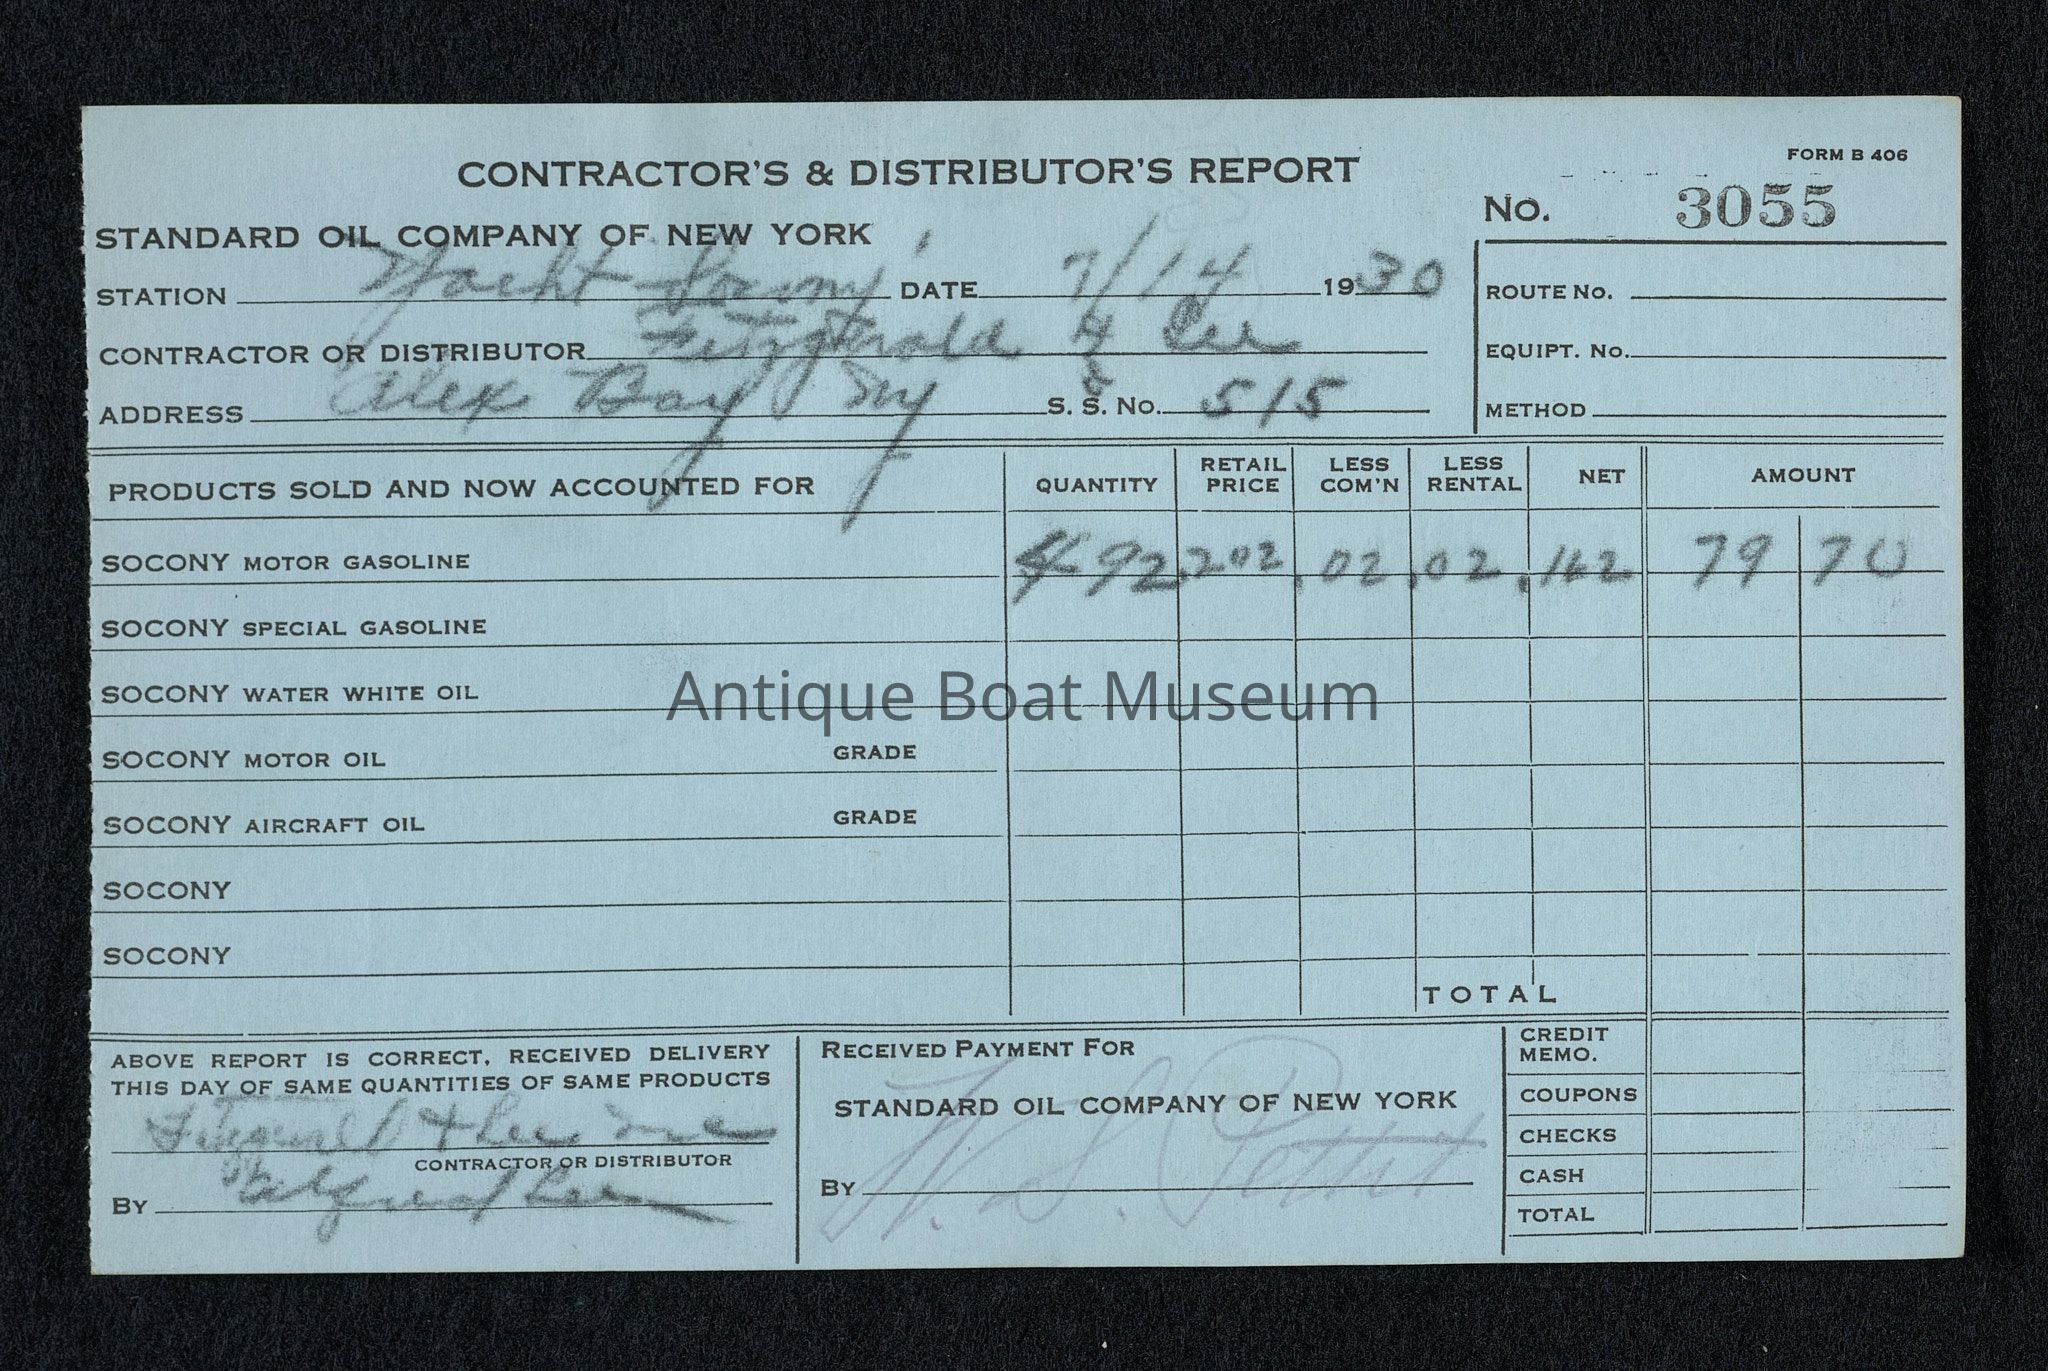 FORM B 406
CONTRACTOR'S & DISTRIBUTOR'S REPORT
No. 3055
STANDARD OIL COMPANY OF NEW YORK
STATION Yacht Socony DATE 7/14 1930
ROUTE No.
CONTRACTOR OR DISTRIBUTOR Fitzgerald & Lee
EQUIPT. No.
ADDRESS Alex Bay NY S. S. No. 515
METHOD
PRODUCTS SOLD AND NOW ACCOUNTED FOR QUANTITY RETAIL PRICE LESS COM'N LESS RENTAL NET AMOUNT
SOCONY MOTOR GASOLINE 492 .202 .02 .02 .162 79 70
SOCONY SPECIAL GASOLINE
SOCONY WATER WHITE OIL
Antique Boat Museum
SOCONY MOTOR OIL GRADE
SOCONY AIRCRAFT OIL GRADE
SOCONY
SOCONY
TOTAL
ABOVE REPORT IS CORRECT, RECEIVED DELIVERY
THIS DAY OF SAME QUANTITIES OF SAME PRODUCTS
Fitzgerald & Lee Inc
CONTRACTOR OR DISTRIBUTOR
BY Lee
RECEIVED PAYMENT FOR
STANDARD OIL COMPANY OF NEW YORK
BY Pettit
CREDIT MEMO.
COUPONS
CHECKS
CASH
TOTAL